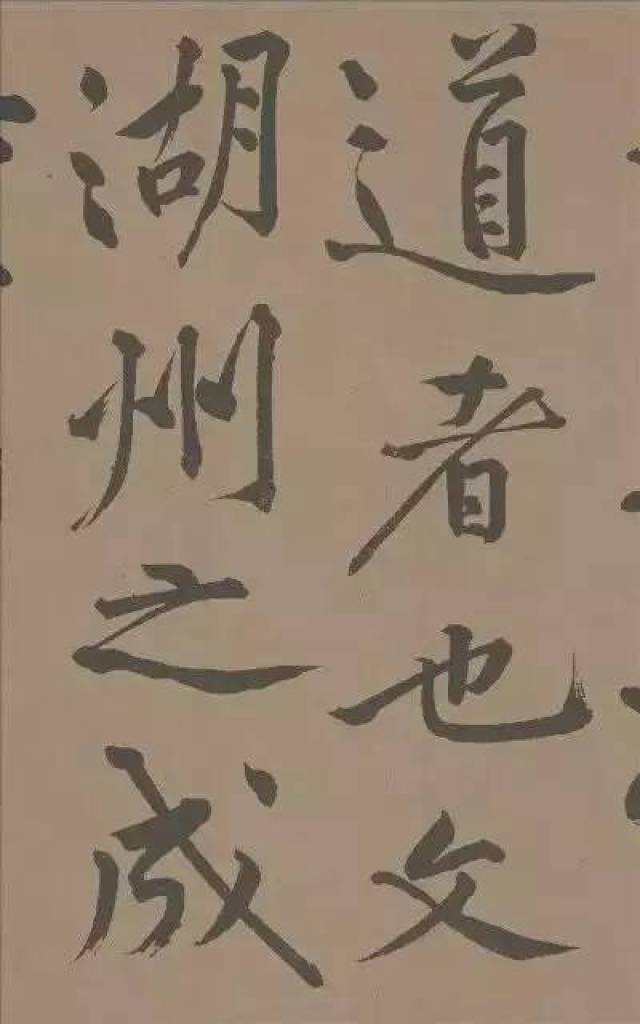 道者也文
湖州之成